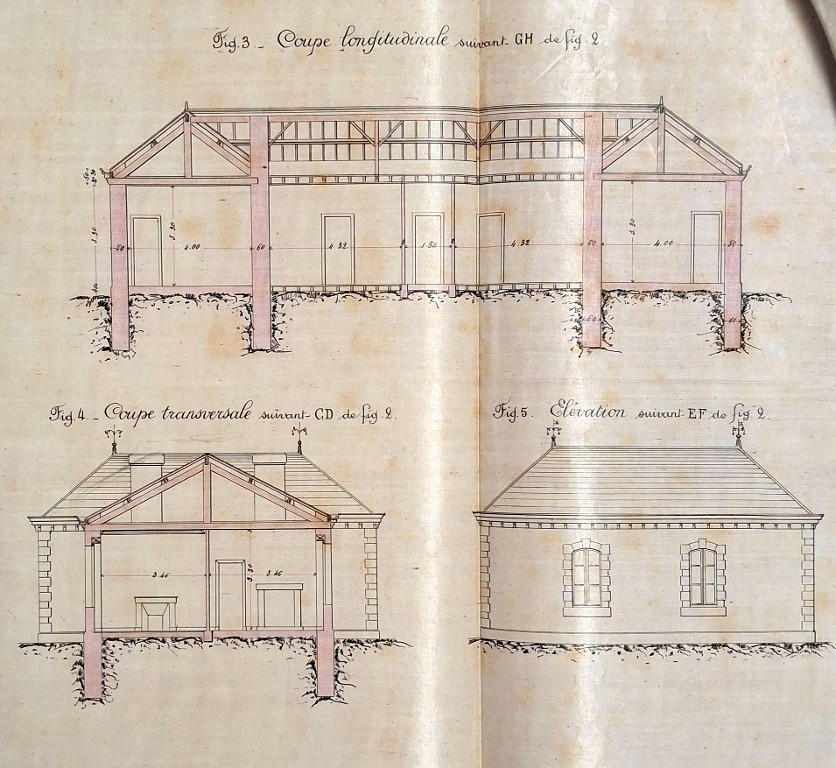 Fig. 3 _ Coupe longitudinale suivant GH de fig. 2.
3.30
50
3.30
4.00
60
4.32
1.50
4.32
60
3.30
4.00
50
Fig. 4 _ Coupe transversale suivant CD de fig. 2.
3.46
3.30
3.46
Fig. 5. Elévation suivant EF de fig. 2.